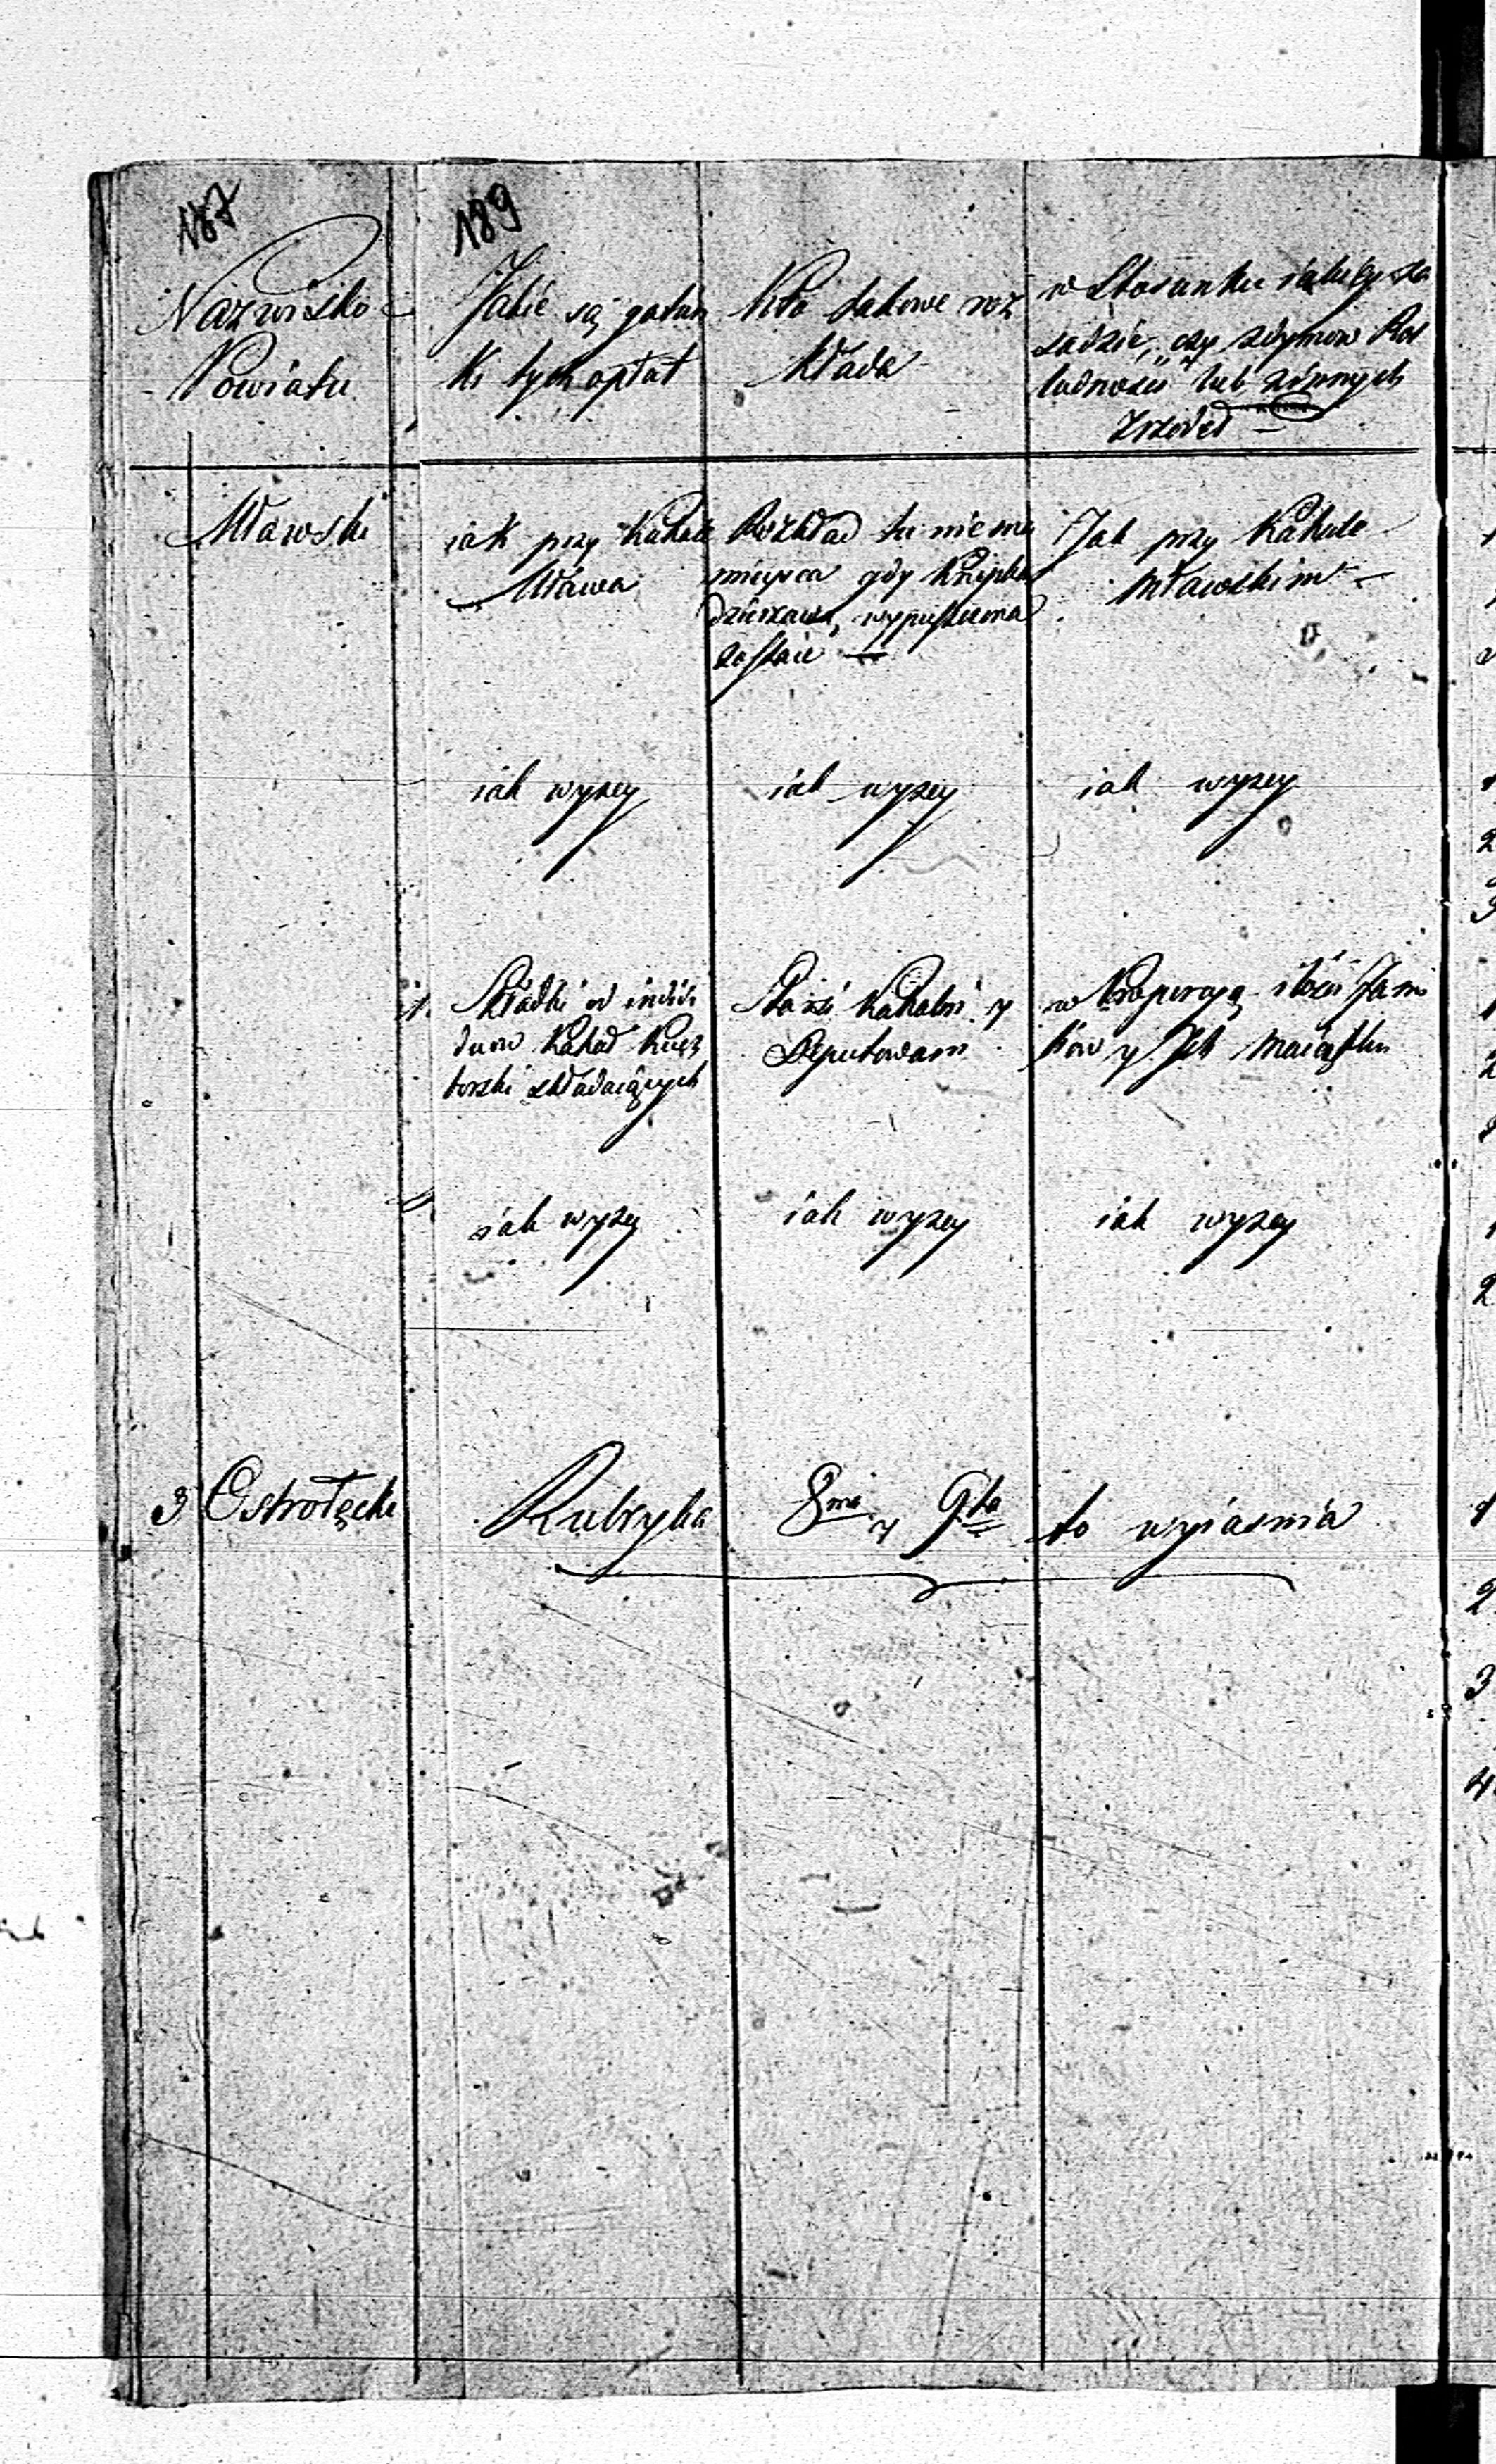 187
189
Nazwisko
Powiatu
Jakie są gatun
ki tych opłat
Kto takowe roz
kłada
w Stosunku iakiego za
sadzie, czy zdymow Rol
ludności lub zinnych
Zrzodeł
Mławski
iak przy Kahale
Mława
Rozkład tu niema
mieysca gdy Krupka
dzierzawą wypuszczona
zostaie
Jak przy Kahale
Mławskim
iak wyzey
iak wyzey
iak wyzey
1. Składki od indivi
duow Kahał
składaiących
Starsi Kahalni y
Deputowani
w Proporcyą ilości Fami
liow y Jch Maiątku
iak wyzey
iak wyzey
iak wyzey
3 Ostrołęcki
Rubryka 8ma y 9ta to wyiasnia